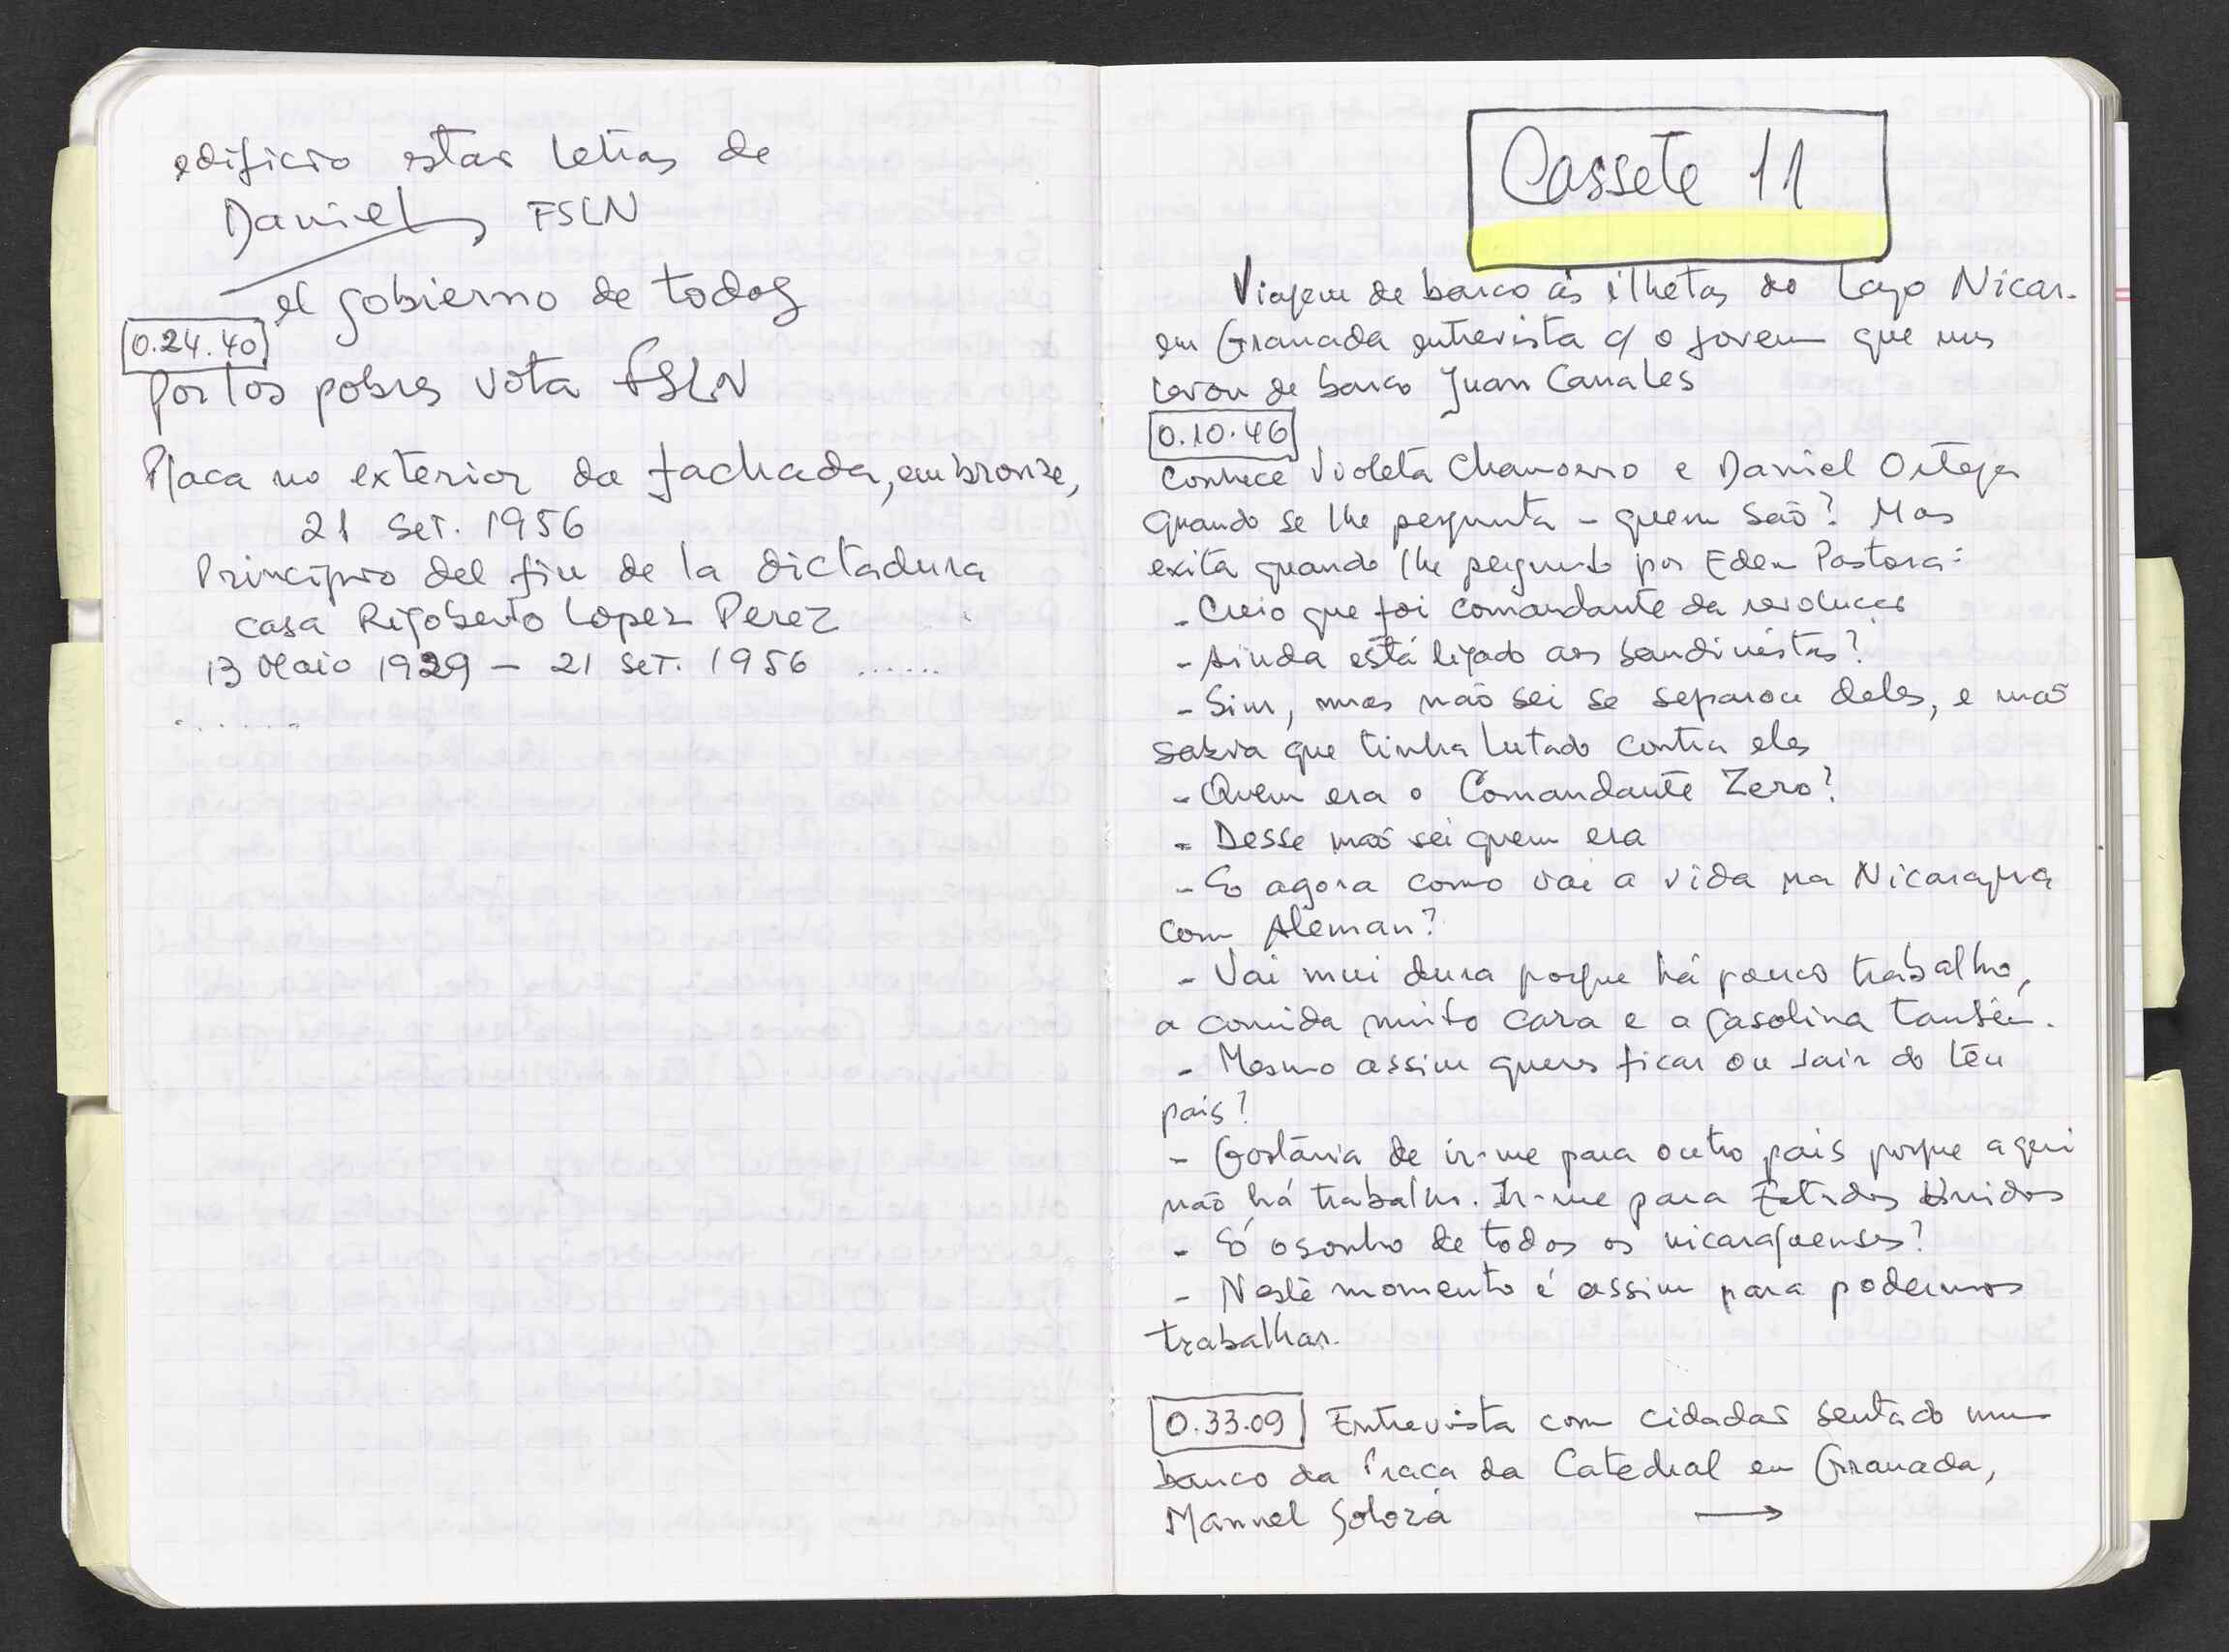 edificio estas letras de
Daniel, FSLN
el gobierno de todos
0.24.40
por los pobres vota FSLN
Placa no exterior da fachada, em bronze,
21 SET. 1956
Princípio del fin de la dictadura
casa Rigoberto Lopez Perez
13 Maio 1929 - 21 SET. 1956 ......
.......
Cassete 11
Viagem de barco às ilhetas do Lago Nicar.
em Granada entrevista c/ o jovem que nos
levou de barco Juan Canales
0.10.46
Conhece Violeta Chamorro e Daniel Ortega
quando se lhe pergunta - quem são? Mas
exita quando lhe pergunto por Eden Pastora:
- Creio que foi comandante da revolução
- Ainda está ligado aos Sandinistas?
- Sim, mas não sei se separou deles, e não
sabia que tinha lutado contra eles
- Quem era o Comandante Zero?
- Desse não sei quem era
- E agora como vai a vida na Nicaragua
com Aleman?
- Vai mui dura porque há pouco trabalho,
a comida muito cara e a gasolina também.
- Mesmo assim queres ficar ou sair do teu
pais?
- Gostaria de ir-me para outro pais porque aqui
não há trabalho. Ir-me para Estados Unidos
- É o sonho de todos os nicaraguenses?
- Neste momento é assim para podermos
trabalhar.
0.33.09 Entrevista com cidadão sentado num
banco da Praça da Catedral em Granada,
Manuel Solozá →